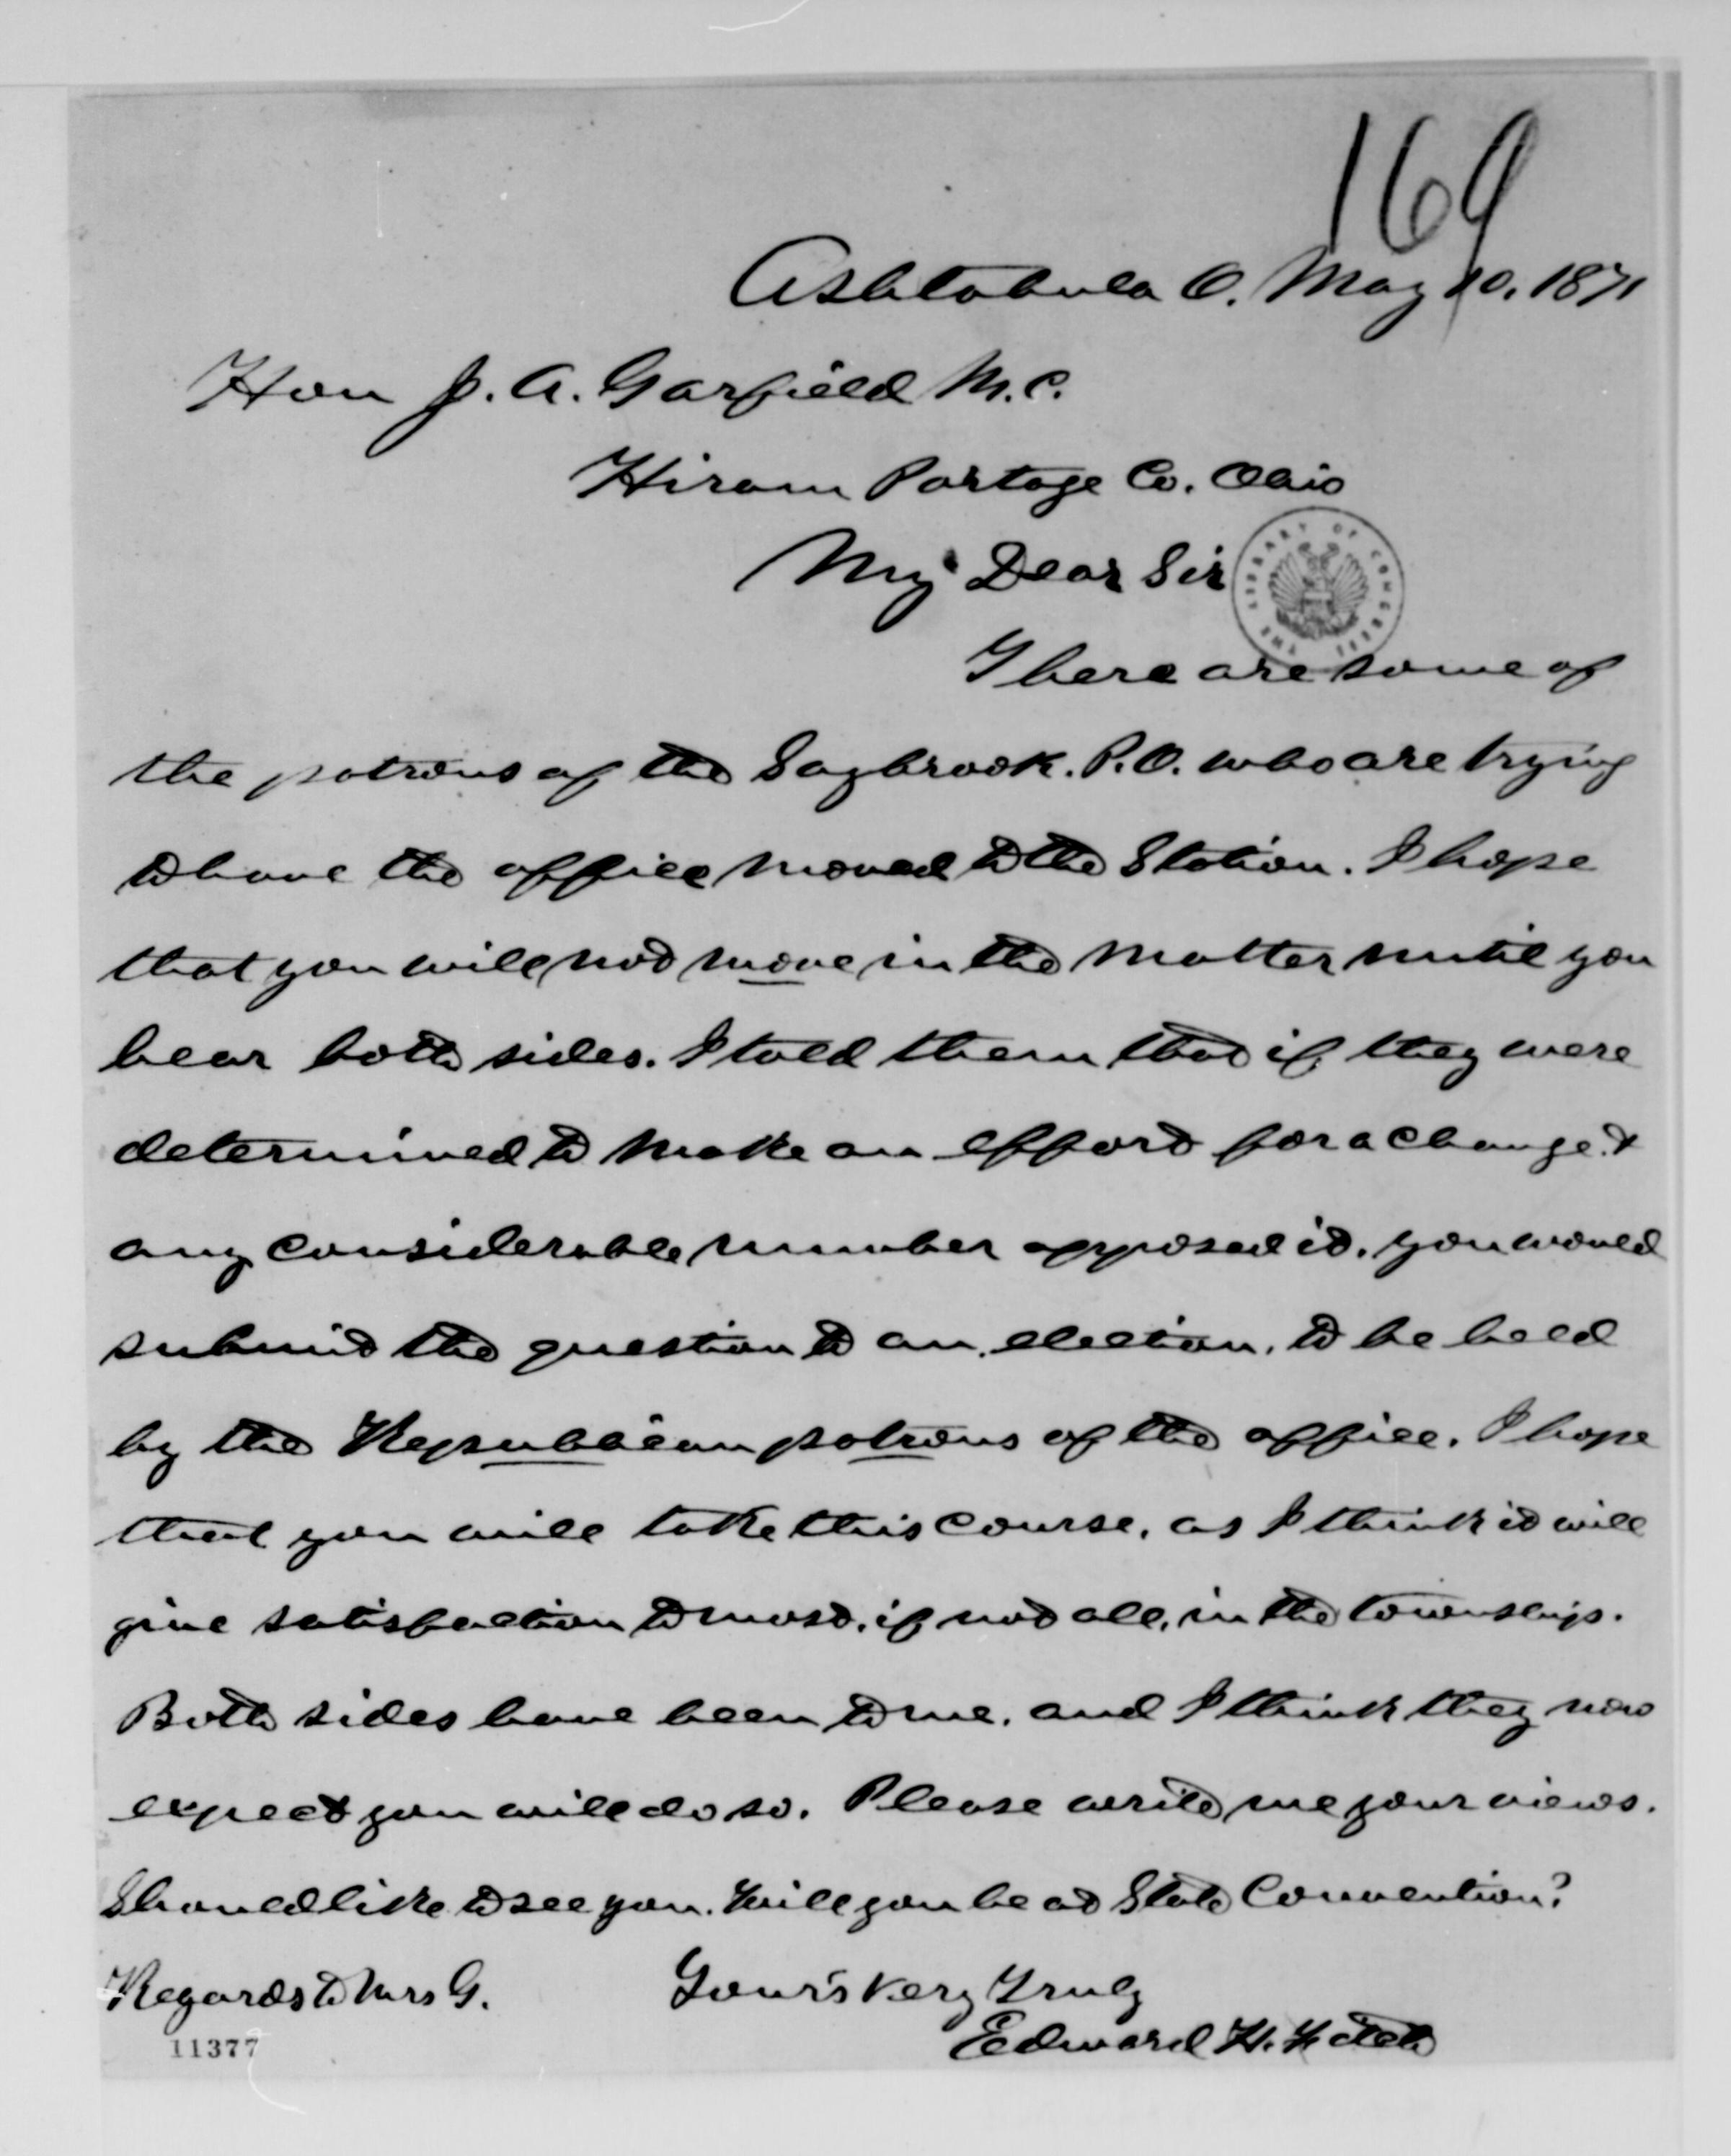 169
Ashtabula O. May 10. 1871
Hon J. A. Garfield M.C.
Hiram Portage Co. Ohio
My Dear Sir
THE LIBRARY OF CONGRESS
There are some of
the patrons of the Saybrook. P.O. who are trying
to have the office moved to the Station. I hope
that you will not move in the matter until you
hear both sides. I told them that if they were
determined to make an effort for a change &
any considerable number opposed it, you would
submit the question to an election, to be held
by the Republican patrons of the office. I hope
that you will take this course, as I think it will
give satisfaction to most, if not all, in the township.
Both sides have been to me, and I think they now
expect you will do so. Please write me your views.
Should like to see you. Will you be at State Convention?
Regards to Mrs G. Yours Very Truly
Edward H. Fitch
11377